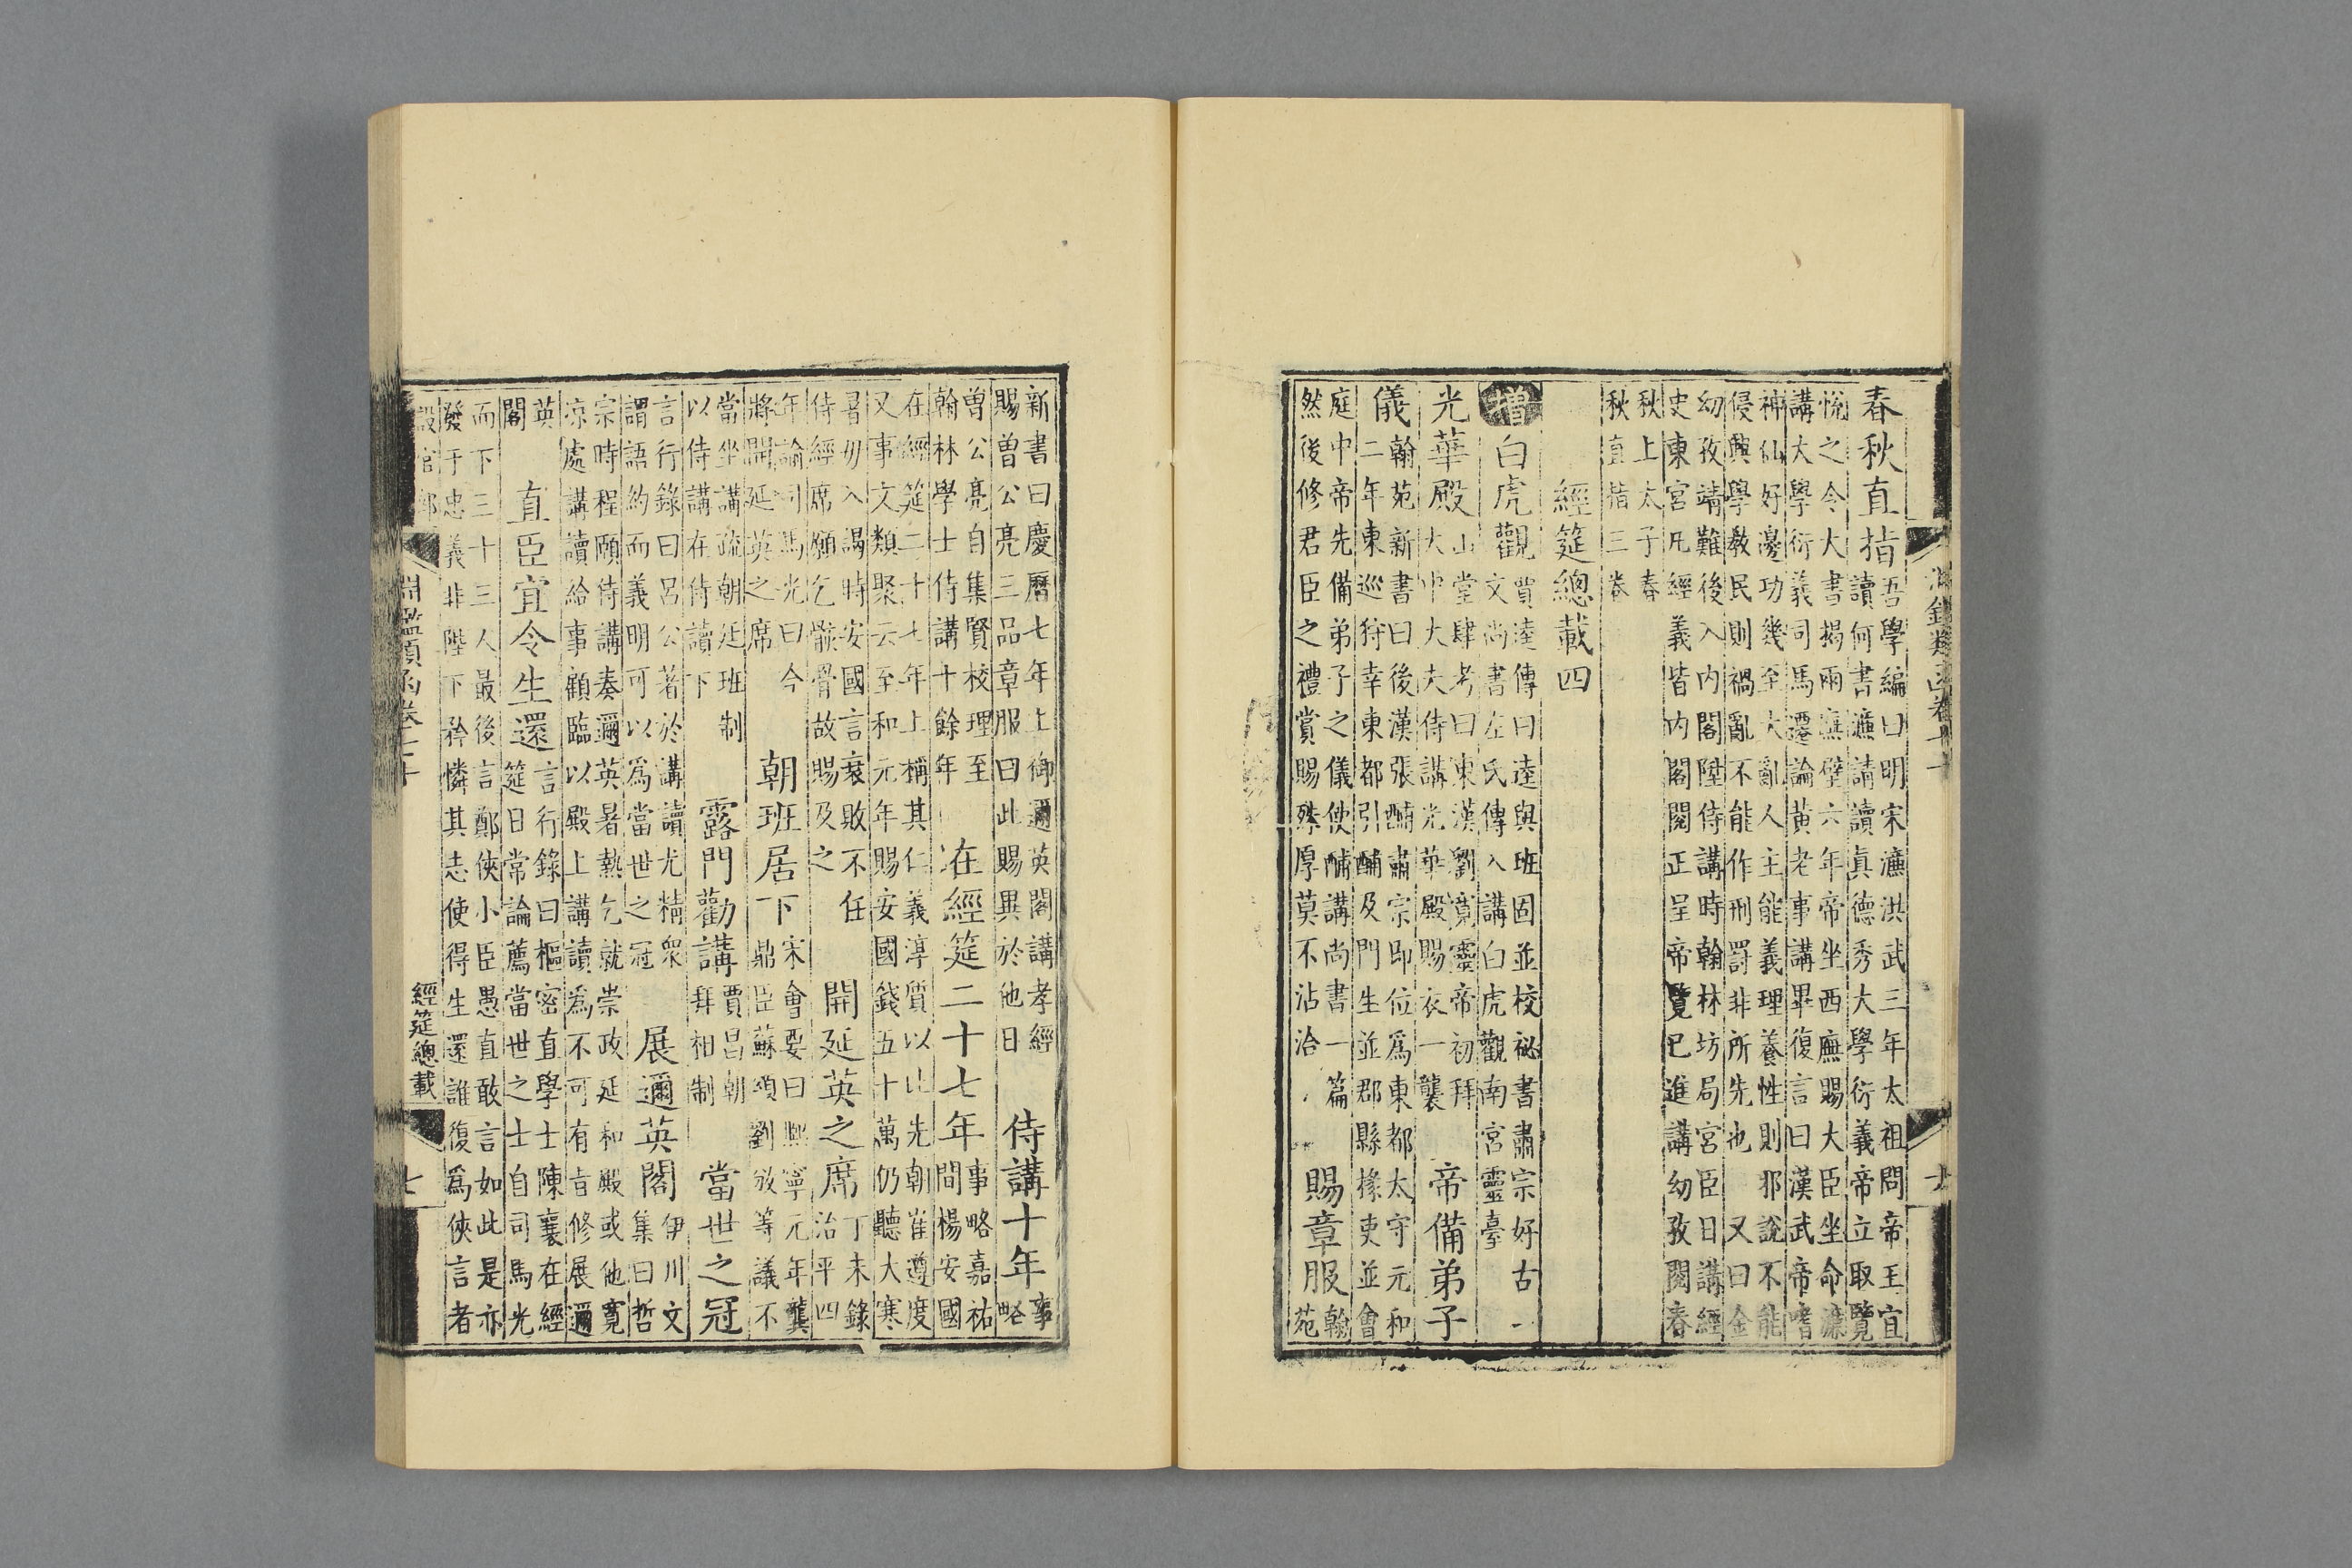 春秋直指
吾學編曰明宋濂洪武三年太祖問帝王宜
讀何書濂請讀真德秀大學衍義帝立取覽
悅之令大書揭兩廡壁六年帝坐西廡賜大臣坐命濂
講大學衍義司馬遷論黃老事講畢復言曰漢武帝嗜
神仙好邊功幾至大亂人主能義理養性則邪說不能
侵興學敎民則禍亂不能作刑罰非所先也 又曰金
幼孜靖難後入內閣陞侍講時翰林坊局宮臣日講經
史東宮凡經義皆內閣閱正呈帝覽已進講幼孜閱春
秋上太子春
秋直指三卷
經筵總載四
增 白虎觀
賈逵傳曰逵與班固並校祕書肅宗好古
文尚書左氏傳入講白虎觀南宮靈臺
光華殿
山堂肆考曰東漢劉寬靈帝初拜
大中大夫侍講光華殿賜衣一襲
帝備弟子
儀
翰苑新書曰後漢張酺肅宗即位爲東都太守元和
二年東巡狩幸東都引酺及門生並郡縣掾吏並會
庭中帝先備弟子之儀使酺講尚書一篇
然後修君臣之禮賞賜殊厚莫不沾洽
賜章服
翰
苑
新書曰慶曆七年上御邇英閣講孝經
賜曾公亮三品章服曰此賜異於他日
侍講十年
事
略
曾公亮自集賢校理至
翰林學士侍講十餘年
在經筵二十七年
事略嘉祐
間楊安國
在經筵二十七年上稱其仁義淳質以比先朝崔遵度
又事文類聚云至和元年賜安國錢五十萬仍聽大寒
暑毋入謁時安國言衰敗不任
侍經席願乞骸骨故賜及之
開延英之席
丁未錄
治平四
年論司馬光曰今
將開延英之席
朝班居下
宋會要曰熙寧元年龔
鼎臣蘇頌劉攽等議不
當坐講疏朝廷班制
以侍講在侍讀下
露門勸講
賈昌朝
拜相制
當世之冠
言行錄曰呂公著於講讀尤精衆
謂語約而義明可以爲當世之冠
展邇英閣
伊川文
集曰哲
宗時程頤侍講奏邇英暑熱乞就崇政延和殿或他寬
凉處講讀給事顧臨以殿上講讀爲不可有旨修展邇
英
閣
直臣宜令生還
言行錄曰樞密直學士陳襄在經
筵日常論薦當世之士自司馬光
而下三十三人最後言鄭俠小臣愚直敢言如此是亦
發于忠義非陛下矜憐其志使得生還誰復爲俠言者
經筵總載
七